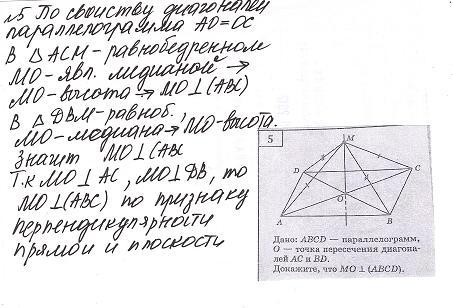 №5 По свойству диагоналей
параллелограмма AO=OC
В △ACM - равнобедренном
MO - явл. медианой →
MO - высота → MO⊥(ABC)
В △DBM - равноб.
MO - медиана → MO - высота.
Значит MO⊥(ABC
Т.к MO⊥AC, MO⊥DB, то
MO⊥(ABC) по признаку
перпендикулярности
прямой и плоскости
5
M
D
C
O
A
B
Дано: ABCD — параллелограмм,
O — точка пересечения диагона-
лей AC и BD.
Докажите, что MO ⊥ (ABCD).